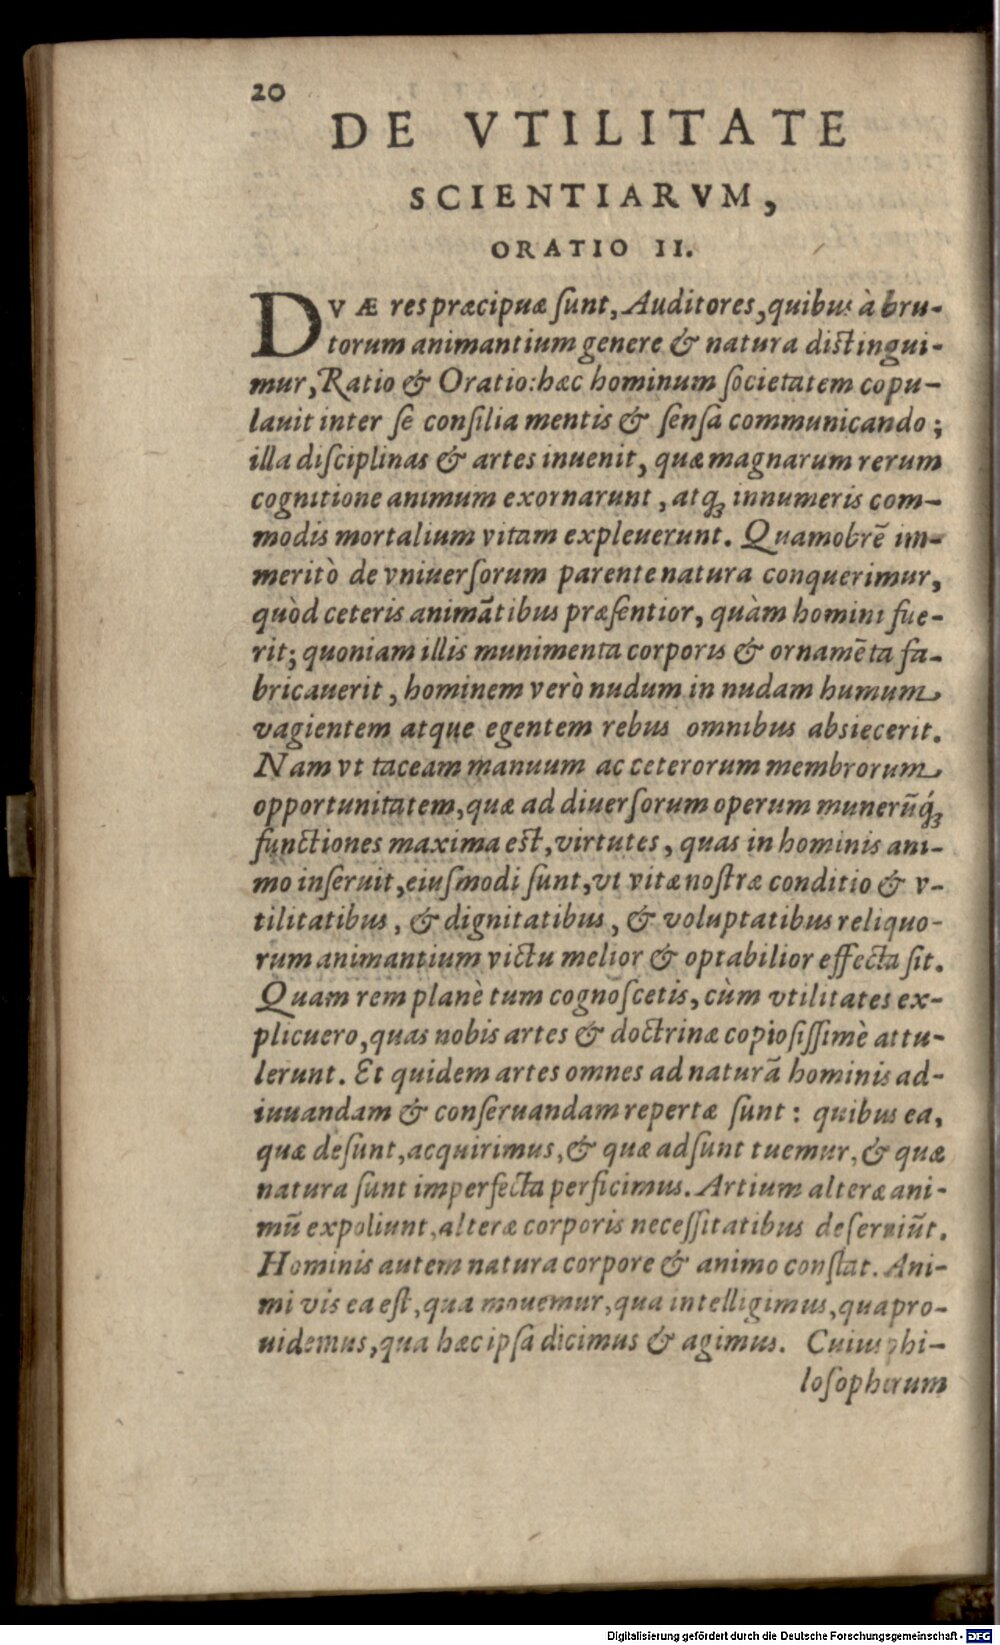 20
DE VTILITATE
SCIENTIARVM,
ORATIO II.
DVÆ res præcipuæ ſunt, Auditores, quibus à bru-
torum animantium genere & natura diſtingui-
mur, Ratio & Oratio: hæc hominum ſocietatem copu-
lauit inter ſe conſilia mentis & ſenſa communicando;
illa diſciplinas & artes inuenit, quæ magnarum rerum
cognitione animum exornarunt, atq́ꝫ innumeris com-
modis mortalium vitam expleuerunt. Quamobrẽ im-
meritò de vniuerſorum parente natura conquerimur,
quòd ceteris animãtibus præſentior, quàm homini fue-
rit; quoniam illis munimenta corporis & ornamẽta fa-
bricauerit, hominem verò nudum in nudam humum
vagientem atque egentem rebus omnibus abiecerit.
Nam vt taceam manuum ac ceterorum membrorum
opportunitatem, quæ ad diuerſorum operum munerũq́ꝫ
functiones maxima eſt, virtutes, quas in hominis ani-
mo inſeruit, eiuſmodi ſunt, vt vitæ noſtræ conditio & v-
tilitatibus, & dignitatibus, & voluptatibus reliquo-
rum animantium victu melior & optabilior effecta ſit.
Quam rem planè tum cognoſcetis, cùm vtilitates ex-
plicuero, quas nobis artes & doctrinæ copioſiſſimè attu-
lerunt. Et quidem artes omnes ad naturã hominis ad-
iuuandam & conſeruandam repertæ ſunt: quibus ea,
quæ deſunt, acquirimus, & quæ adſunt tuemur, & quæ
natura ſunt imperfecta perficimus. Artium alteræ ani-
mũ expoliunt, alteræ corporis neceſſitatibus deſeruiũt.
Hominis autem natura corpore & animo conſtat. Ani-
mi vis ea eſt, qua mouemur, qua intelligimus, qua pro-
uidemus, qua hæc ipſa dicimus & agimus. Cuius phi-
loſophorum
Digitalisierung gefördert durch die Deutsche Forschungsgemeinschaft - DFG